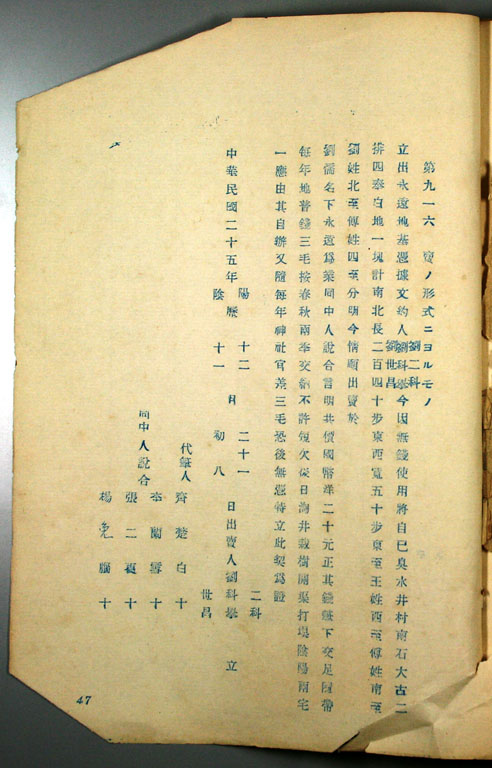 第九一六 賣ノ形式ニヨルモノ
立出永遠地基憑據文約人劉二科劉科舉劉世昌今因無錢使用將自已臭水井村南石大古二
排四奉白地一塊計南北長二百四十步東西寬五十步東至王姓西至傅姓南至
劉姓北至傅姓四至分明今情願出賣於
劉儒名下永遠為業同中人說合言明共價國幣洋二十元正其錢筆下交足隨帶
每年地普錢三毛按春秋兩季交納不許短欠從日淘井栽樹開渠打場陰陽兩宅
一應由其自辦又隨每年神社官差三毛恐後無憑特立此契為證
中華民國二十五年陽陰歷十二十一月二十一初八日出賣人劉二科科舉世昌立
代筆人 齊楚白 十
同中人說合 李蘭雲 十
張二 十
楊兔腦 十
47